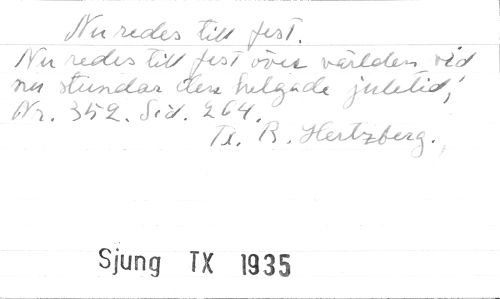 Nu redes till fest.
Nu redes till fest över världen vid
nu stundar den helgade juletid,
Nr. 352. Sid. 264.
Tr. R. Hertzberg.
Sjung TX 1935